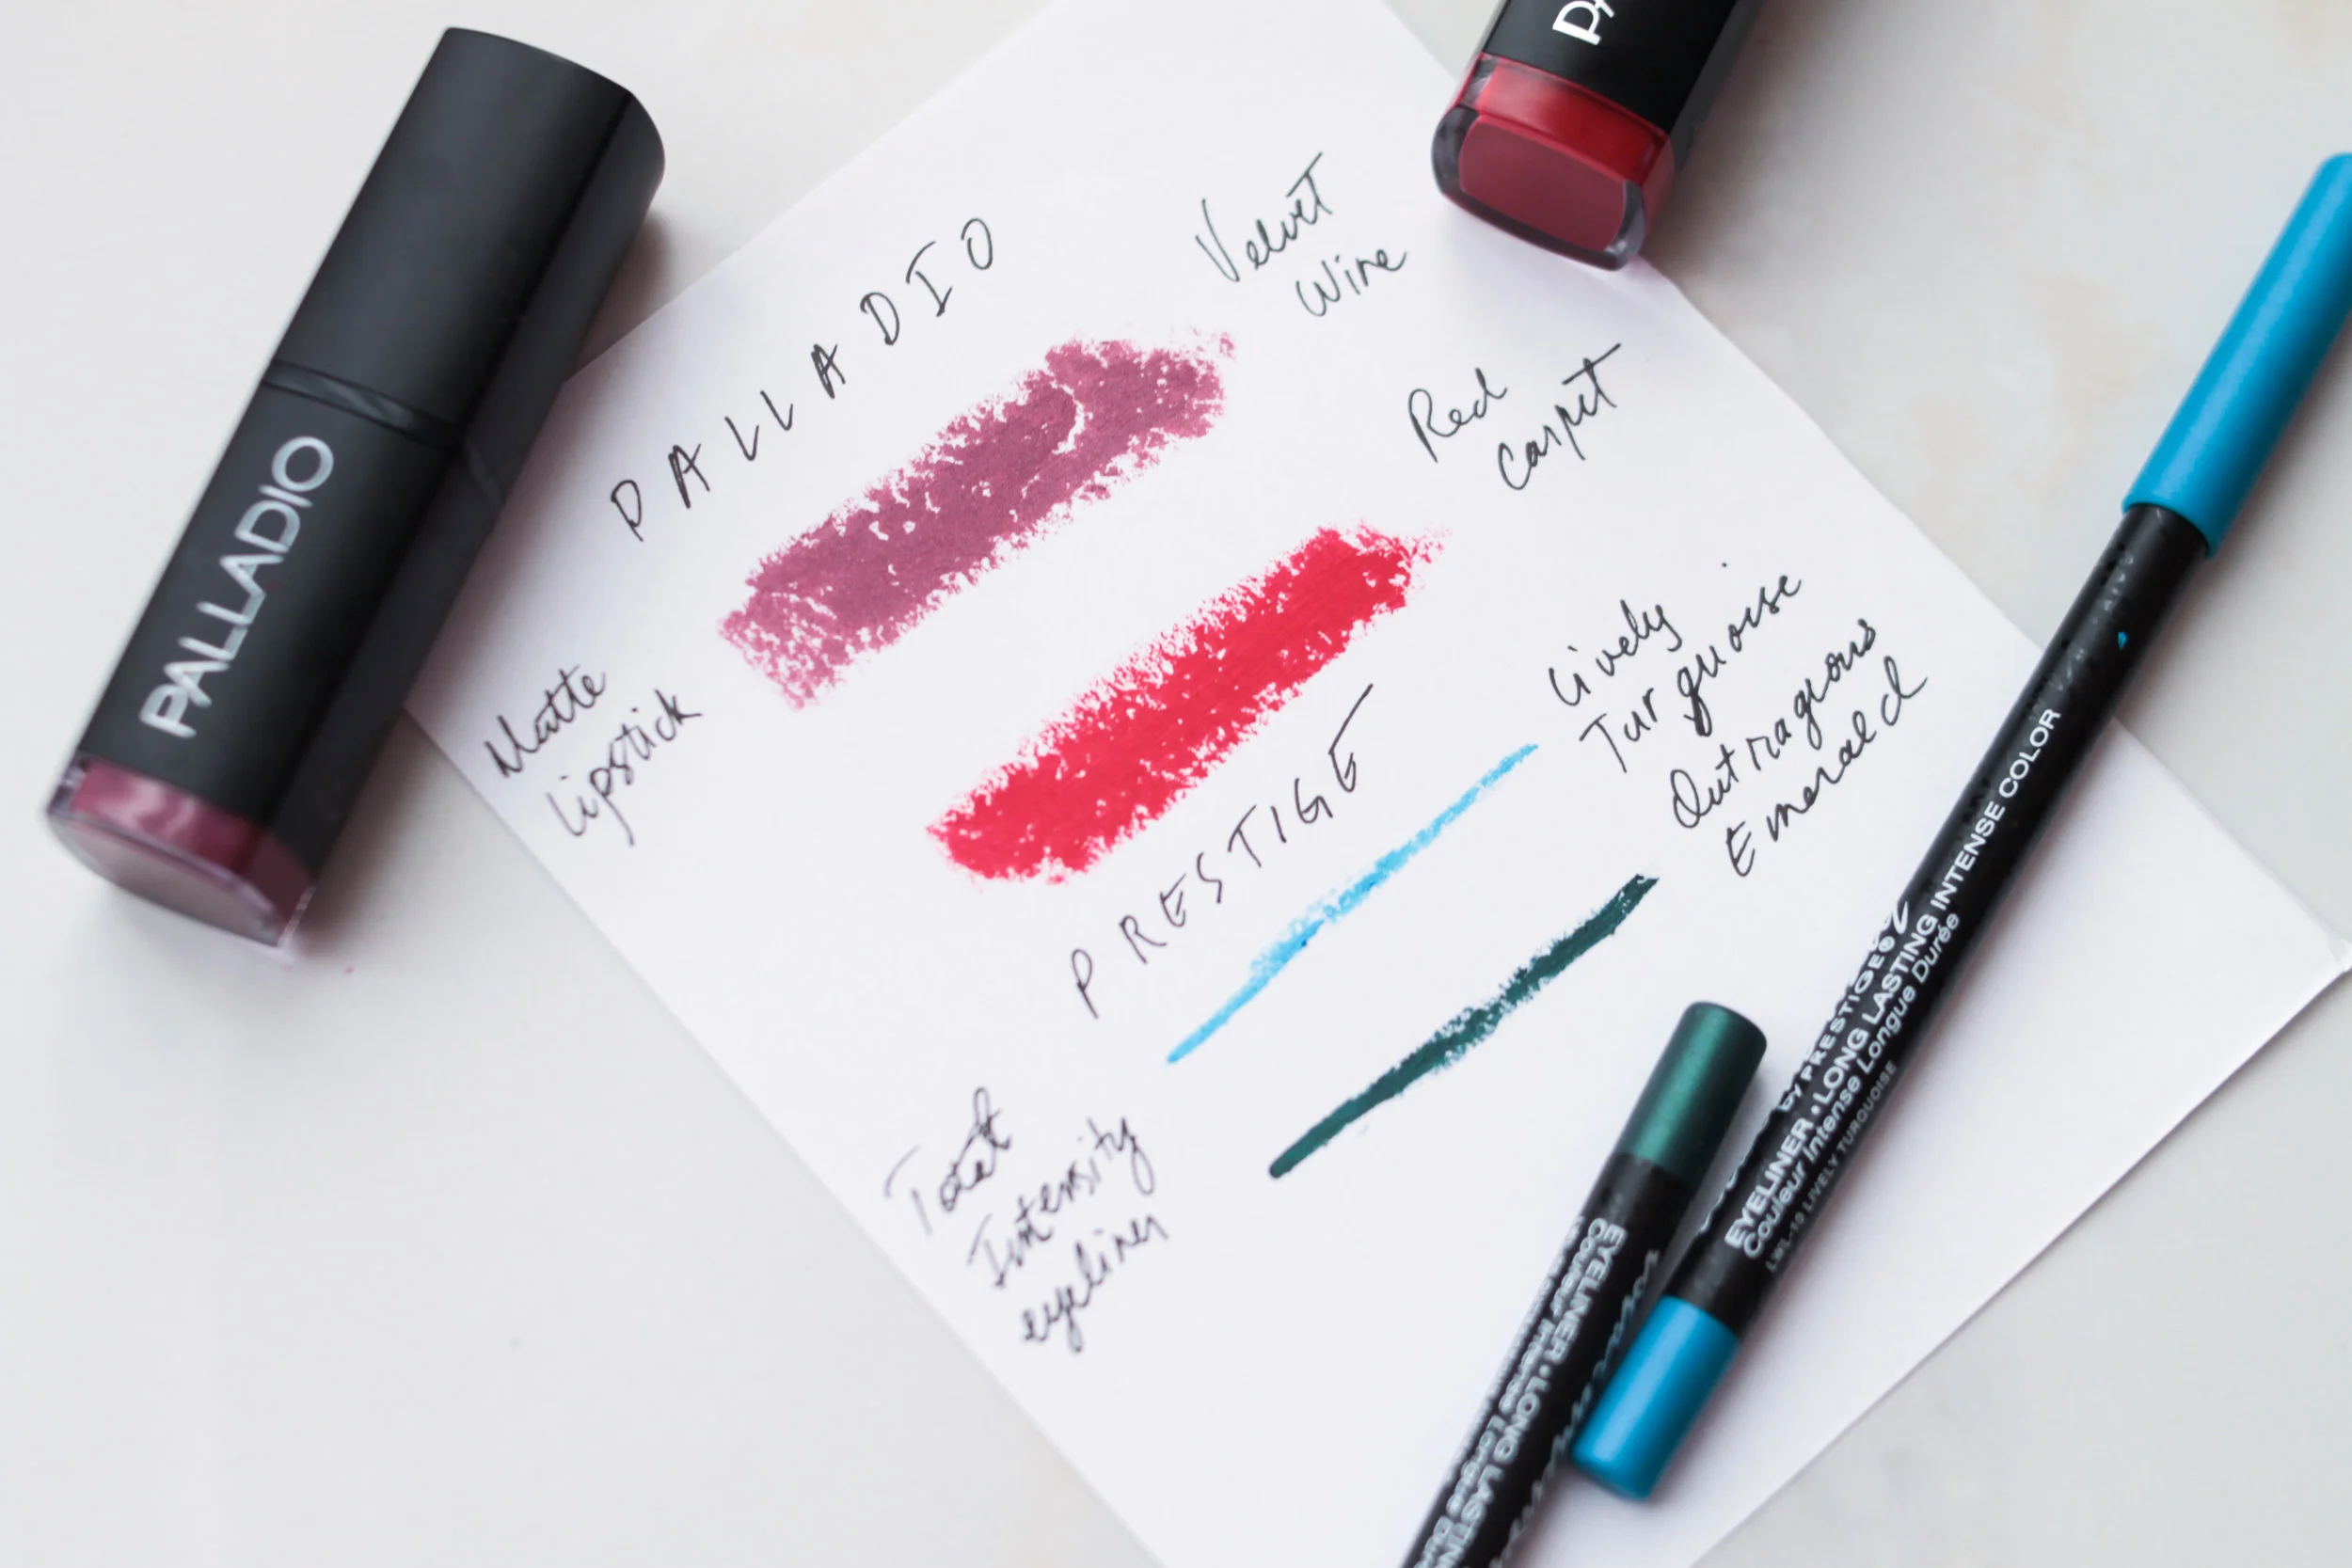 PALLADIO
PA
PALLADIO
Velvet
Wine
Red
Carpet
Matte
Lipstick
PRESTIGE
Lively
Turquoise
Outrageous
Emerald
Total
Intensity
eyeliner
by PRESTIGE
EYELINER • LONG LASTING INTENSE COLOR
Couleur Intense Longue Durée
LWL-10 LIVELY TURQUOISE
EYELINER • LONG LASTIN
Couleur Intense Longue Du